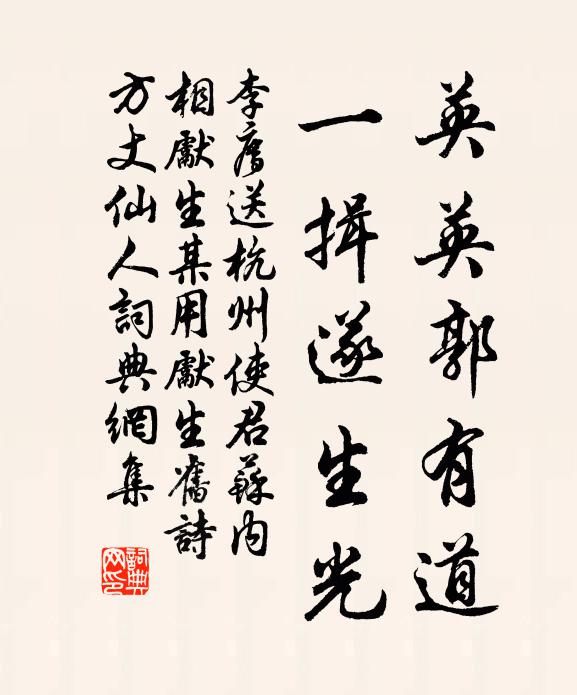 英英郭有道
一揖遂生光
李廌送杭州使君蘇內
相獻生某用獻生舊詩
方丈仙人詞典網集
詞典
网印